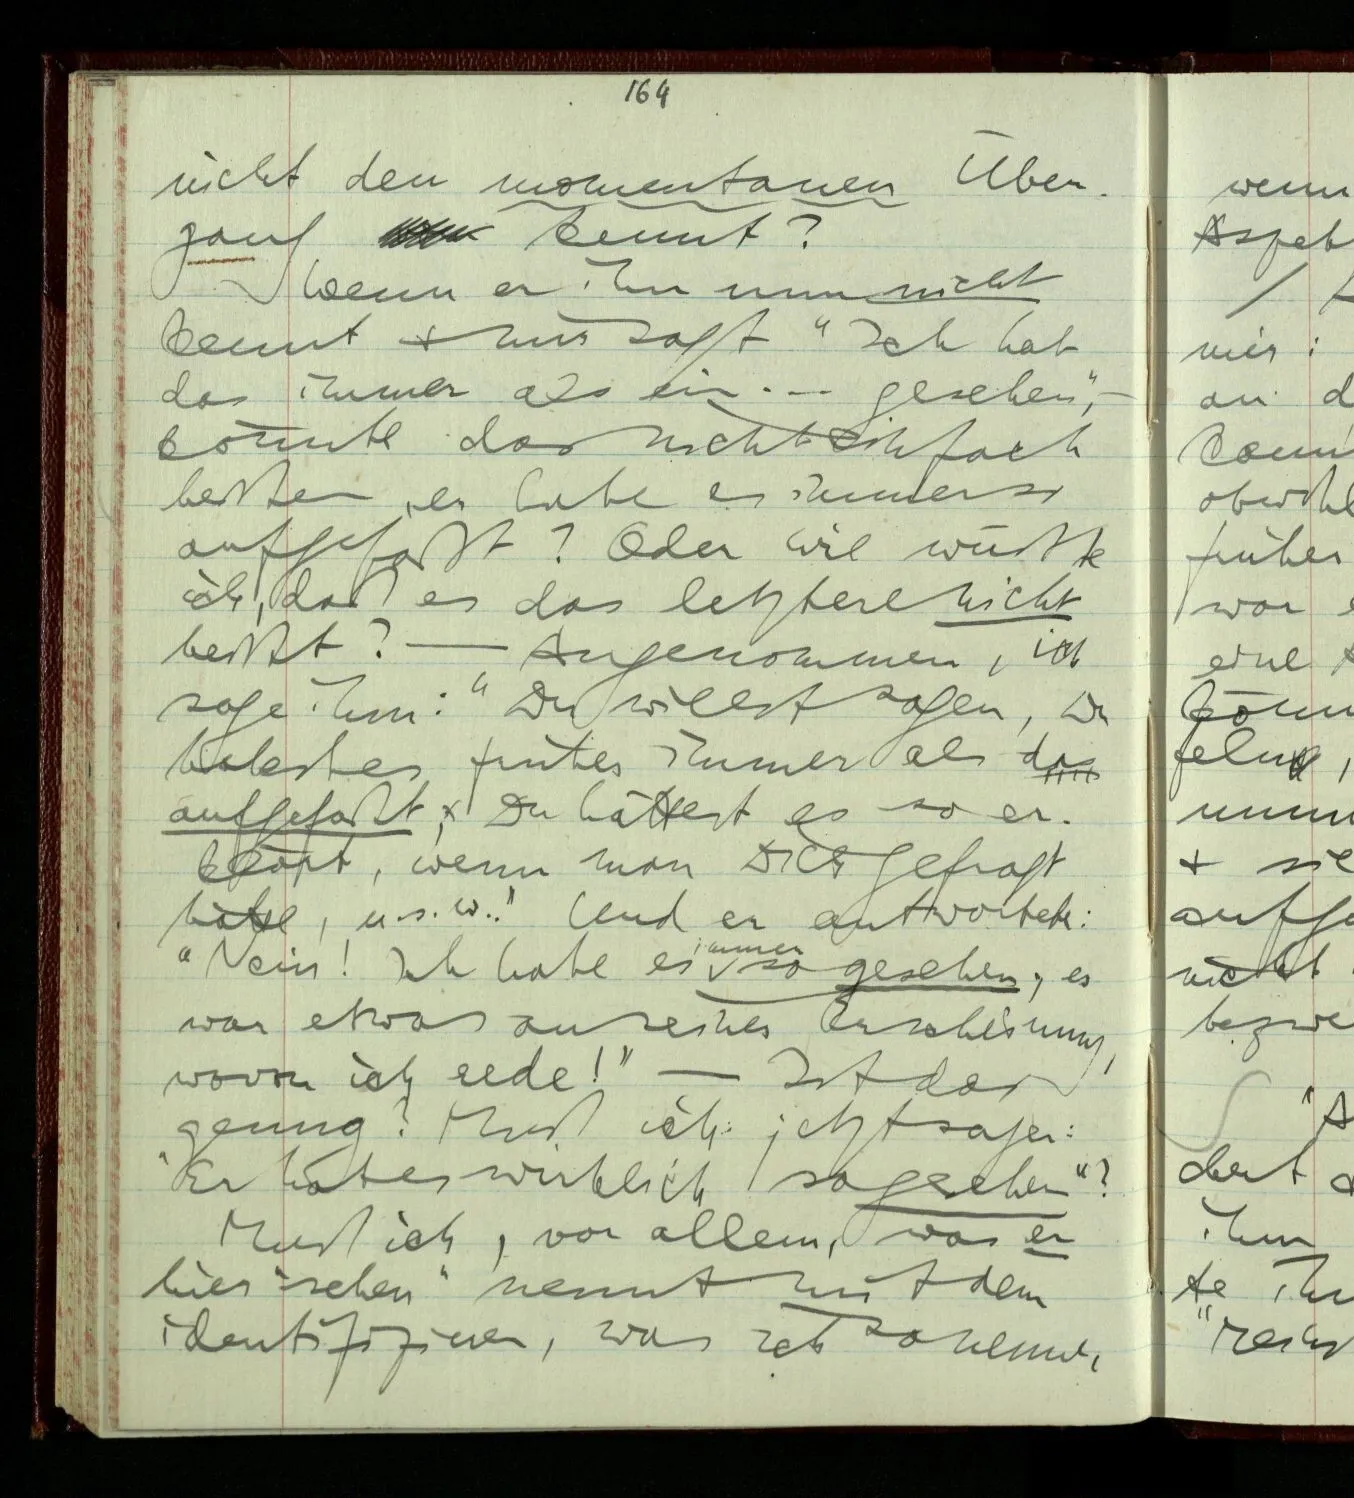 164
nicht den momentanen Über-
gang kennt?
Wenn er ihn nun nicht
kennt + nur sagt "Ich hab
das immer als ein --- gesehen", –
könnte das nicht einfach
heißen, er habe es immer so
aufgefaßt? Oder wie wüßte
ich, daß es das letztere nicht
heißt? — Angenommen, ich
sage ihm: "Du willst sagen, Du
habest es früher immer als das
aufgefaßt, + Du hättest es so er-
klärt, wenn man Dich gefragt
hätte, u.s.w.." Und er antwortet:
"Nein! Ich habe es immer so gesehen; es
war etwas an seiner Erscheinung,
wovon ich rede!" — Ist das
genug? Muß ich jetzt sagen:
"Er hat es wirklich so gesehen"?
Muß ich, vor allem, was er
hier "sehen" nennt mit dem
identifizieren, was ich so nenne,
wenn
Aspek
/
mir:
an d
kann
obwohl
früher
war
eine
könn
feln,
+ sie
aufge
nicht
bezwe
"A
dert
ihm
te ih